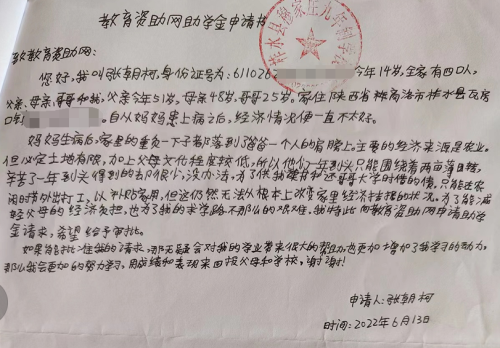 教育资助网助学金申请
柞水县 九年
致教育资助网:
您好,我叫张朝柯,身份证号为:611026 今年14岁,全家有四口人,
父亲、母亲、哥哥和我,父亲今年51岁,母亲48岁,哥哥25岁。家住陕西省 商洛市柞水县瓦房
口 自从妈妈患上病之后,经济情况便一直不大好。
妈妈生病后,家里的重负一下子都落到了爸爸一个人的肩膀上主要的经济来源是农业。
但必定土地有限,加上父母文化程度较低,所以他们一年到头只能围绕着两亩薄田转,
辛苦了一年到头得到的却很少,没办法,为了供我读书和还哥哥大学时借的债,只能在农
闲时节外出打工,以补贴家用,但这仍然无法从根本上改变家里经济拮据的状况。为了能减
轻父母的经济负担,也为了我的求学路不那么的艰难,我特此向教育资助网申请助学
金请求,希望给予审批。
如果能批准我的请求,那无疑会对我的学业带来很大的帮助也更加增加了我学习的动力,
那么我会更加的努力学习,用成绩和表现来回报父母和学校,谢谢!
申请人:张朝柯
时间:2022年6月13日